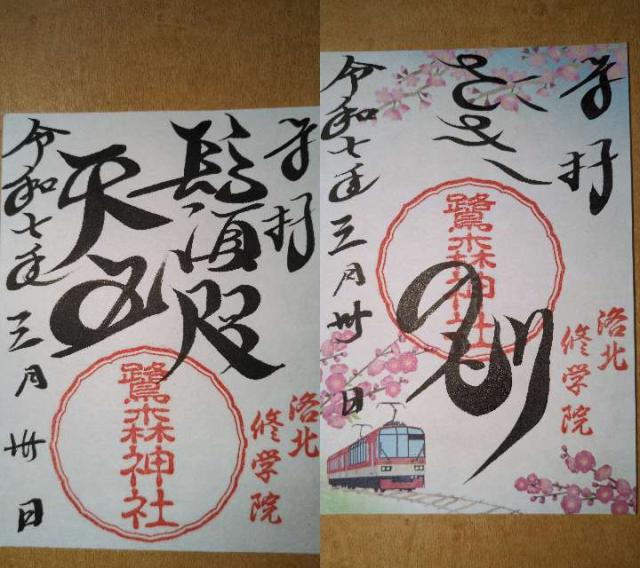 奉拝
天
令和七年三月卅日
鷺森神社
洛北
修学院
奉拝
さぎ
のもり
令和七年三月卅日
鷺森神社
洛北
修学院